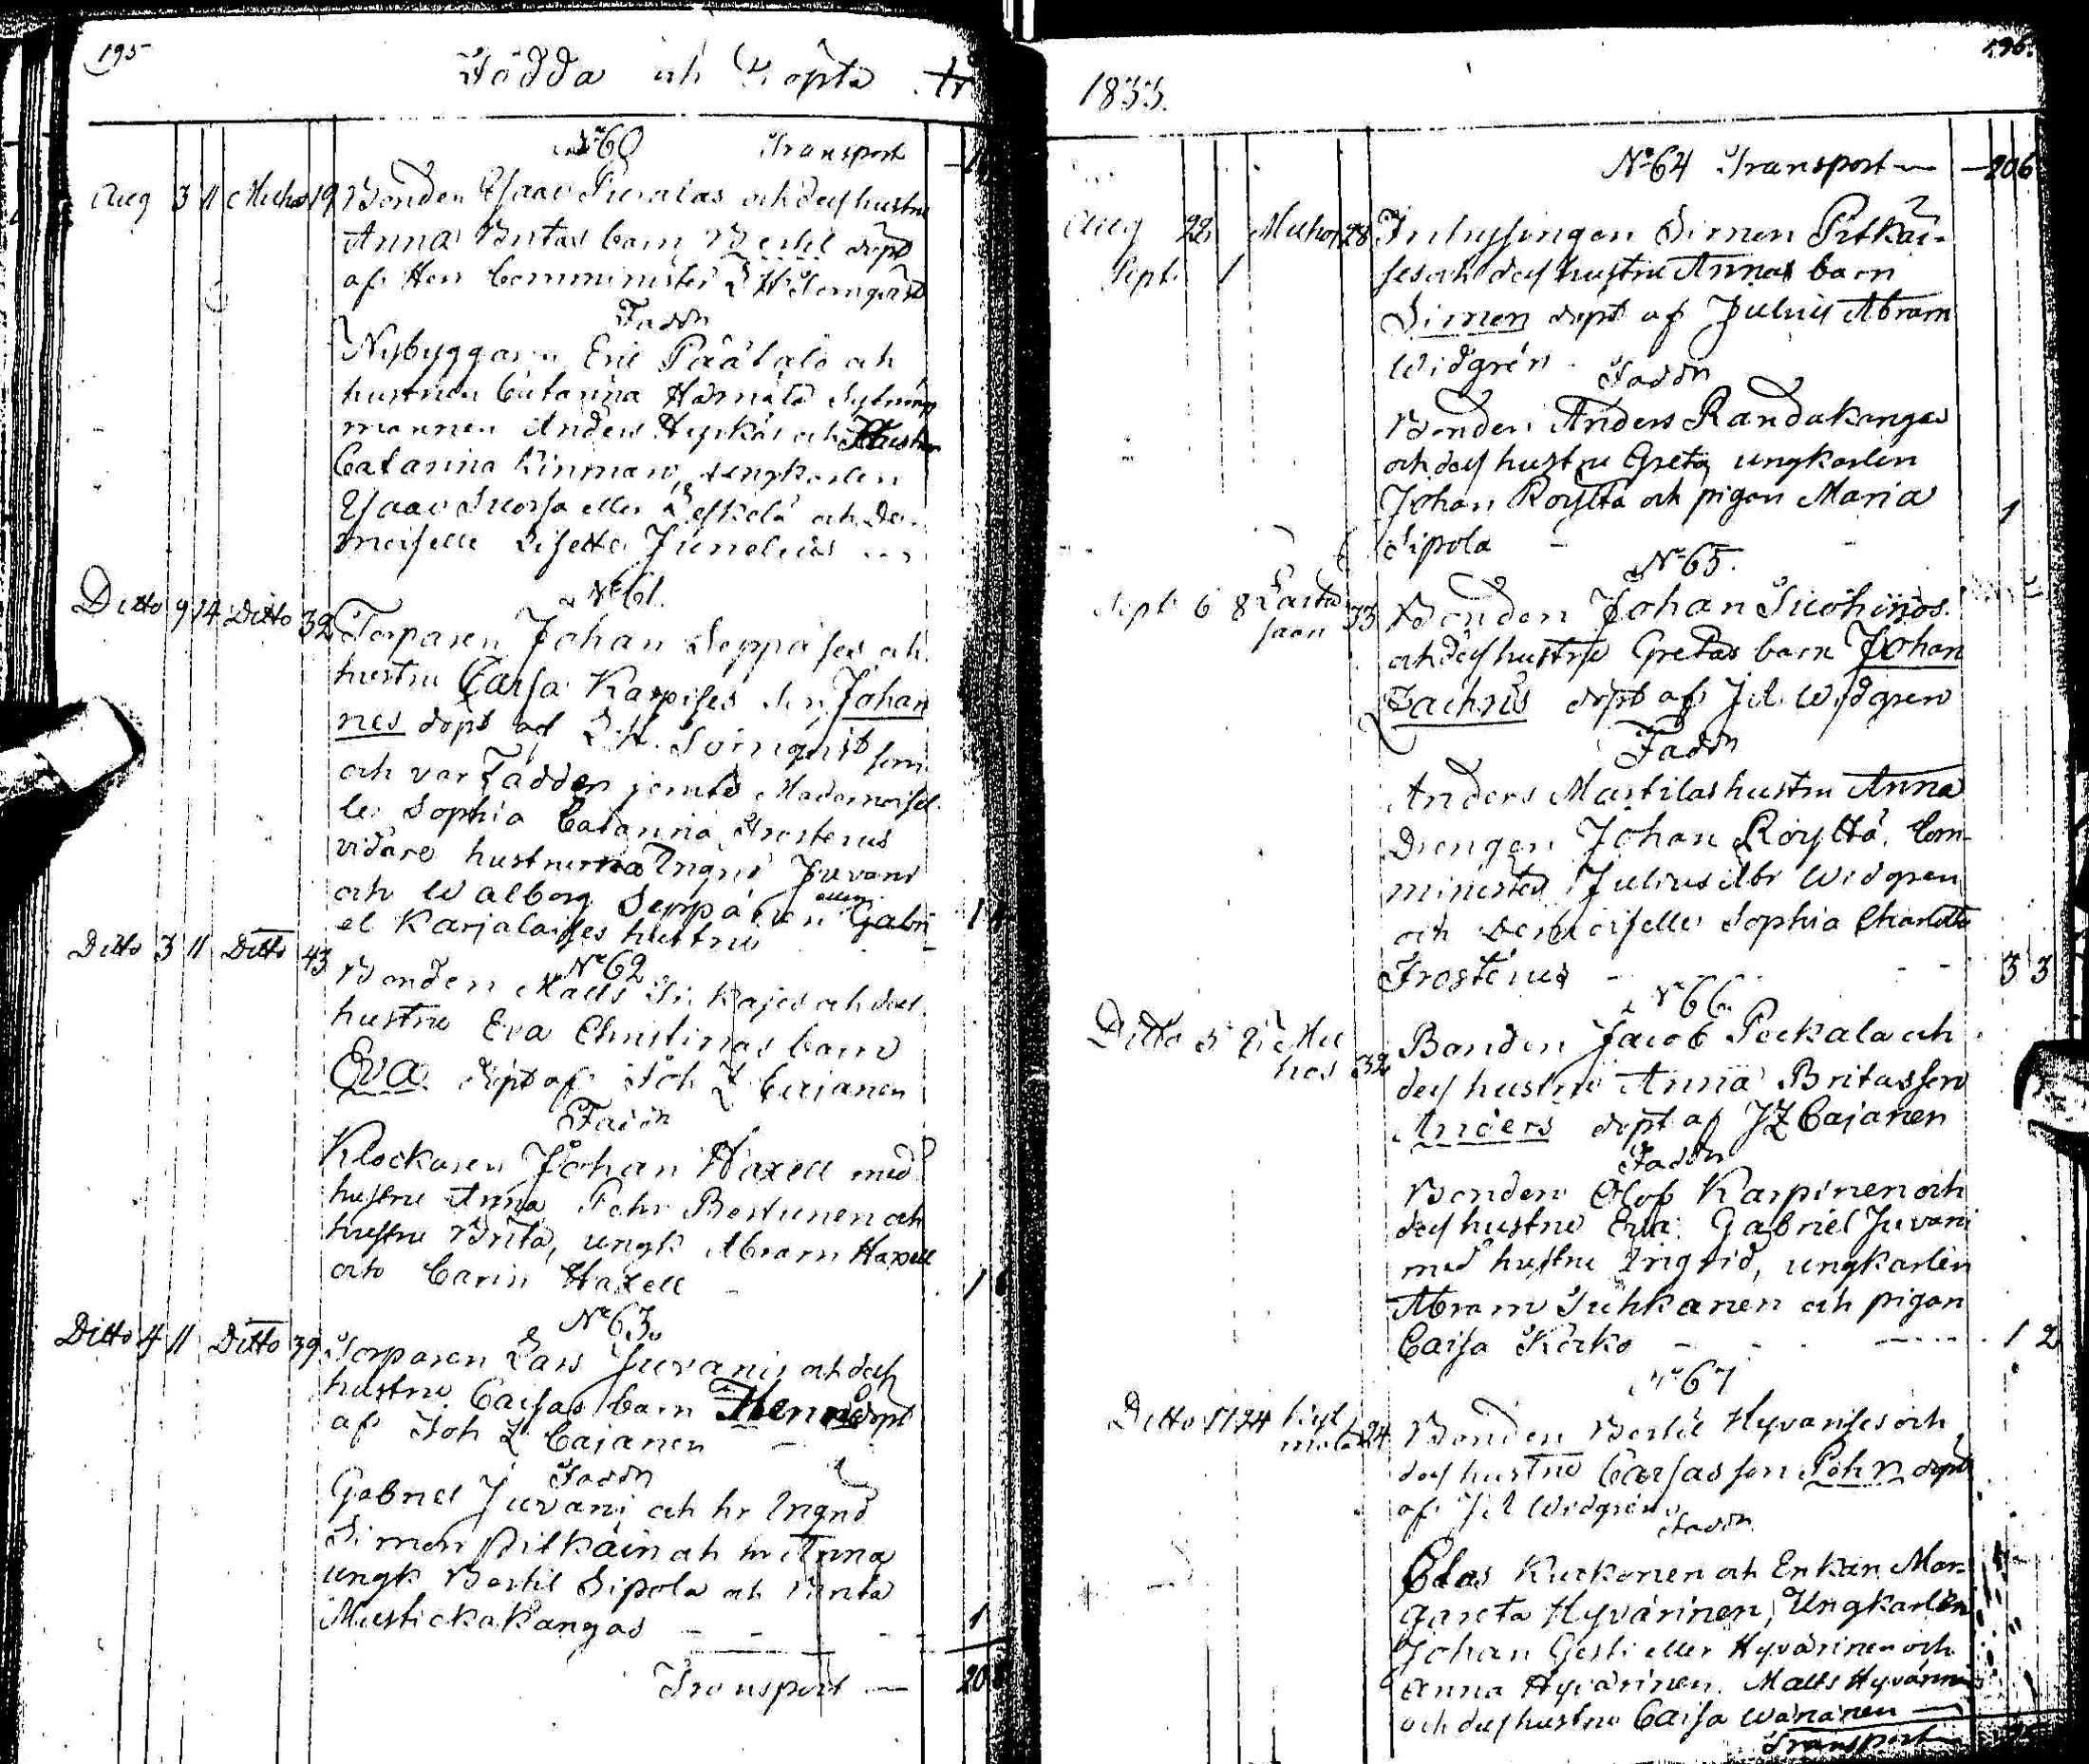 195
Födda och Döpta år
No 60 Transport
Aug 3 11 Muhos 19 Bonden Isaac Pieralas och dess hustru
Anna Britas barn Bertil döpt
af Herr Comminister L H Tornqvist
Faddr
Nybyggaren Eric Päätalo och
hustrun Catarina Härmälä
mannen Anders Hyrkäs och Hustru
Catarina Kinman, ungkarlen
Isaac Suorsa eller Leskelä och De-
moiselle Lisette Junelius
No 61.
Ditto 9 14 Ditto 32 Torparen Johan Seppäses och
hustru Caisa Karpises son Johan
nes döpt af L. H. Tornqvist som
och var Fadder jemte Mademoisel-
le Sophia Catarina Frosterus
vidare hustrurna Ingrid Juvani
och Walborg Seppänen Gabri-
el Karjalaises hustru
No 62
Ditto 3 11 Ditto 43 Bonden Matts Tikkajes och dess
hustru Eva Christinas barn
Eva döpt af Joh Z Cajanen
Faddr
Klockaren Johan Haxell med
hustru Anna Pehr Bertunen och
hustru Brita, ungk Abram Haxell
och Carin Haxell
No 63.
Ditto 4 11 Ditto 39 Torparen Lars Juvanis och dess
hustru Caisas barn Henric döpt
af Joh Z Cajanen
Faddr
Gabriel Juvani och hr Ingrid
Simon Pitkäin och hr Anna
ungk Bertil Sipola och Brita
Mustickakangas 1
Transport
1833.
196.
No 64 Transport 206
Aug 22 Muhos 28 Inhysingen Simon Pitkäi-
Sept. 1 ses och dess hustru Annas barn
Simon döpt af Julius Abram
Widgrén
Faddr
Bonden Anders Randakangas
och dess hustru Greta, ungkarlen
Johan Röyttä och pigan Maria
Sipola 1
No 65.
Sept 6 8 33 Bonden Johan Suohinos
och dess hustru Gretas barn Johan
Zachris döpt af J A Widgren
Faddr
Anders Mustilas hustru Anna
Drengen Johan Röyttä, Com-
minister Julius Abr Widgren
och Demoiselle Sophia Charlotta
Frosterus 3 3
No 66.
Ditto Mu
hos 32 Bonden Jacob Peekala och
dess hustru Anna Britas son
Anders döpt af J Z Cajanen
Faddr
Bonden Olof Karpinen och
dess hustru Eva. Gabriel Juvani
med hustru Ingrid, ungkarlen
Abram Tuhkanen och pigan
Caisa Kërkö 1 2
No 67
Ditto 17 24 24 Bonden Bertil Hyvärises och
dess hustru Caisas son Pehr döpt
af J A Widgrén
Faddr
Elas Kuckonen och Enkan Mar-
gareta Hyvärinen, Ungkarlen
Johan Gesti eller Hyvärinen och
Anna Hyvärinen. Matts Hyvärinen
och dess hustru Caisa Wänänen
Transport